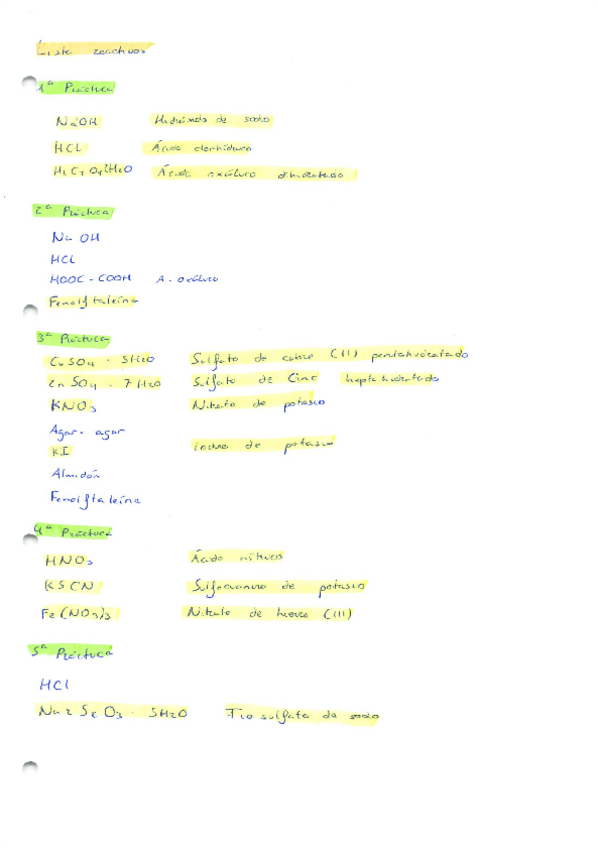 Lista reactivos
1ª Práctica
NaOH Hidróxido de sodio
HCL Ácido clorhídrico
H2C2O4·2H2O Ácido oxálico dihidratado
2ª Práctica
NaOH
HCL
HOOC-COOH A. oxálico
Fenolftaleína
3ª Práctica
CuSO4 · 5H2O Sulfato de cobre (II) pentahidratado
ZnSO4 · 7H2O Sulfato de Cinc heptahidratado
KNO3 Nitrato de potasio
Agar-agar
KI ioduro de potasio
Almidón
Fenolftaleína
4ª Práctica
HNO3 Ácido nítrico
KSCN Sulfocianuro de potasio
Fe(NO3)3 Nitrato de hierro (III)
5ª Práctica
HCl
Na2S2O3 · 5H2O Tiosulfato de sodio